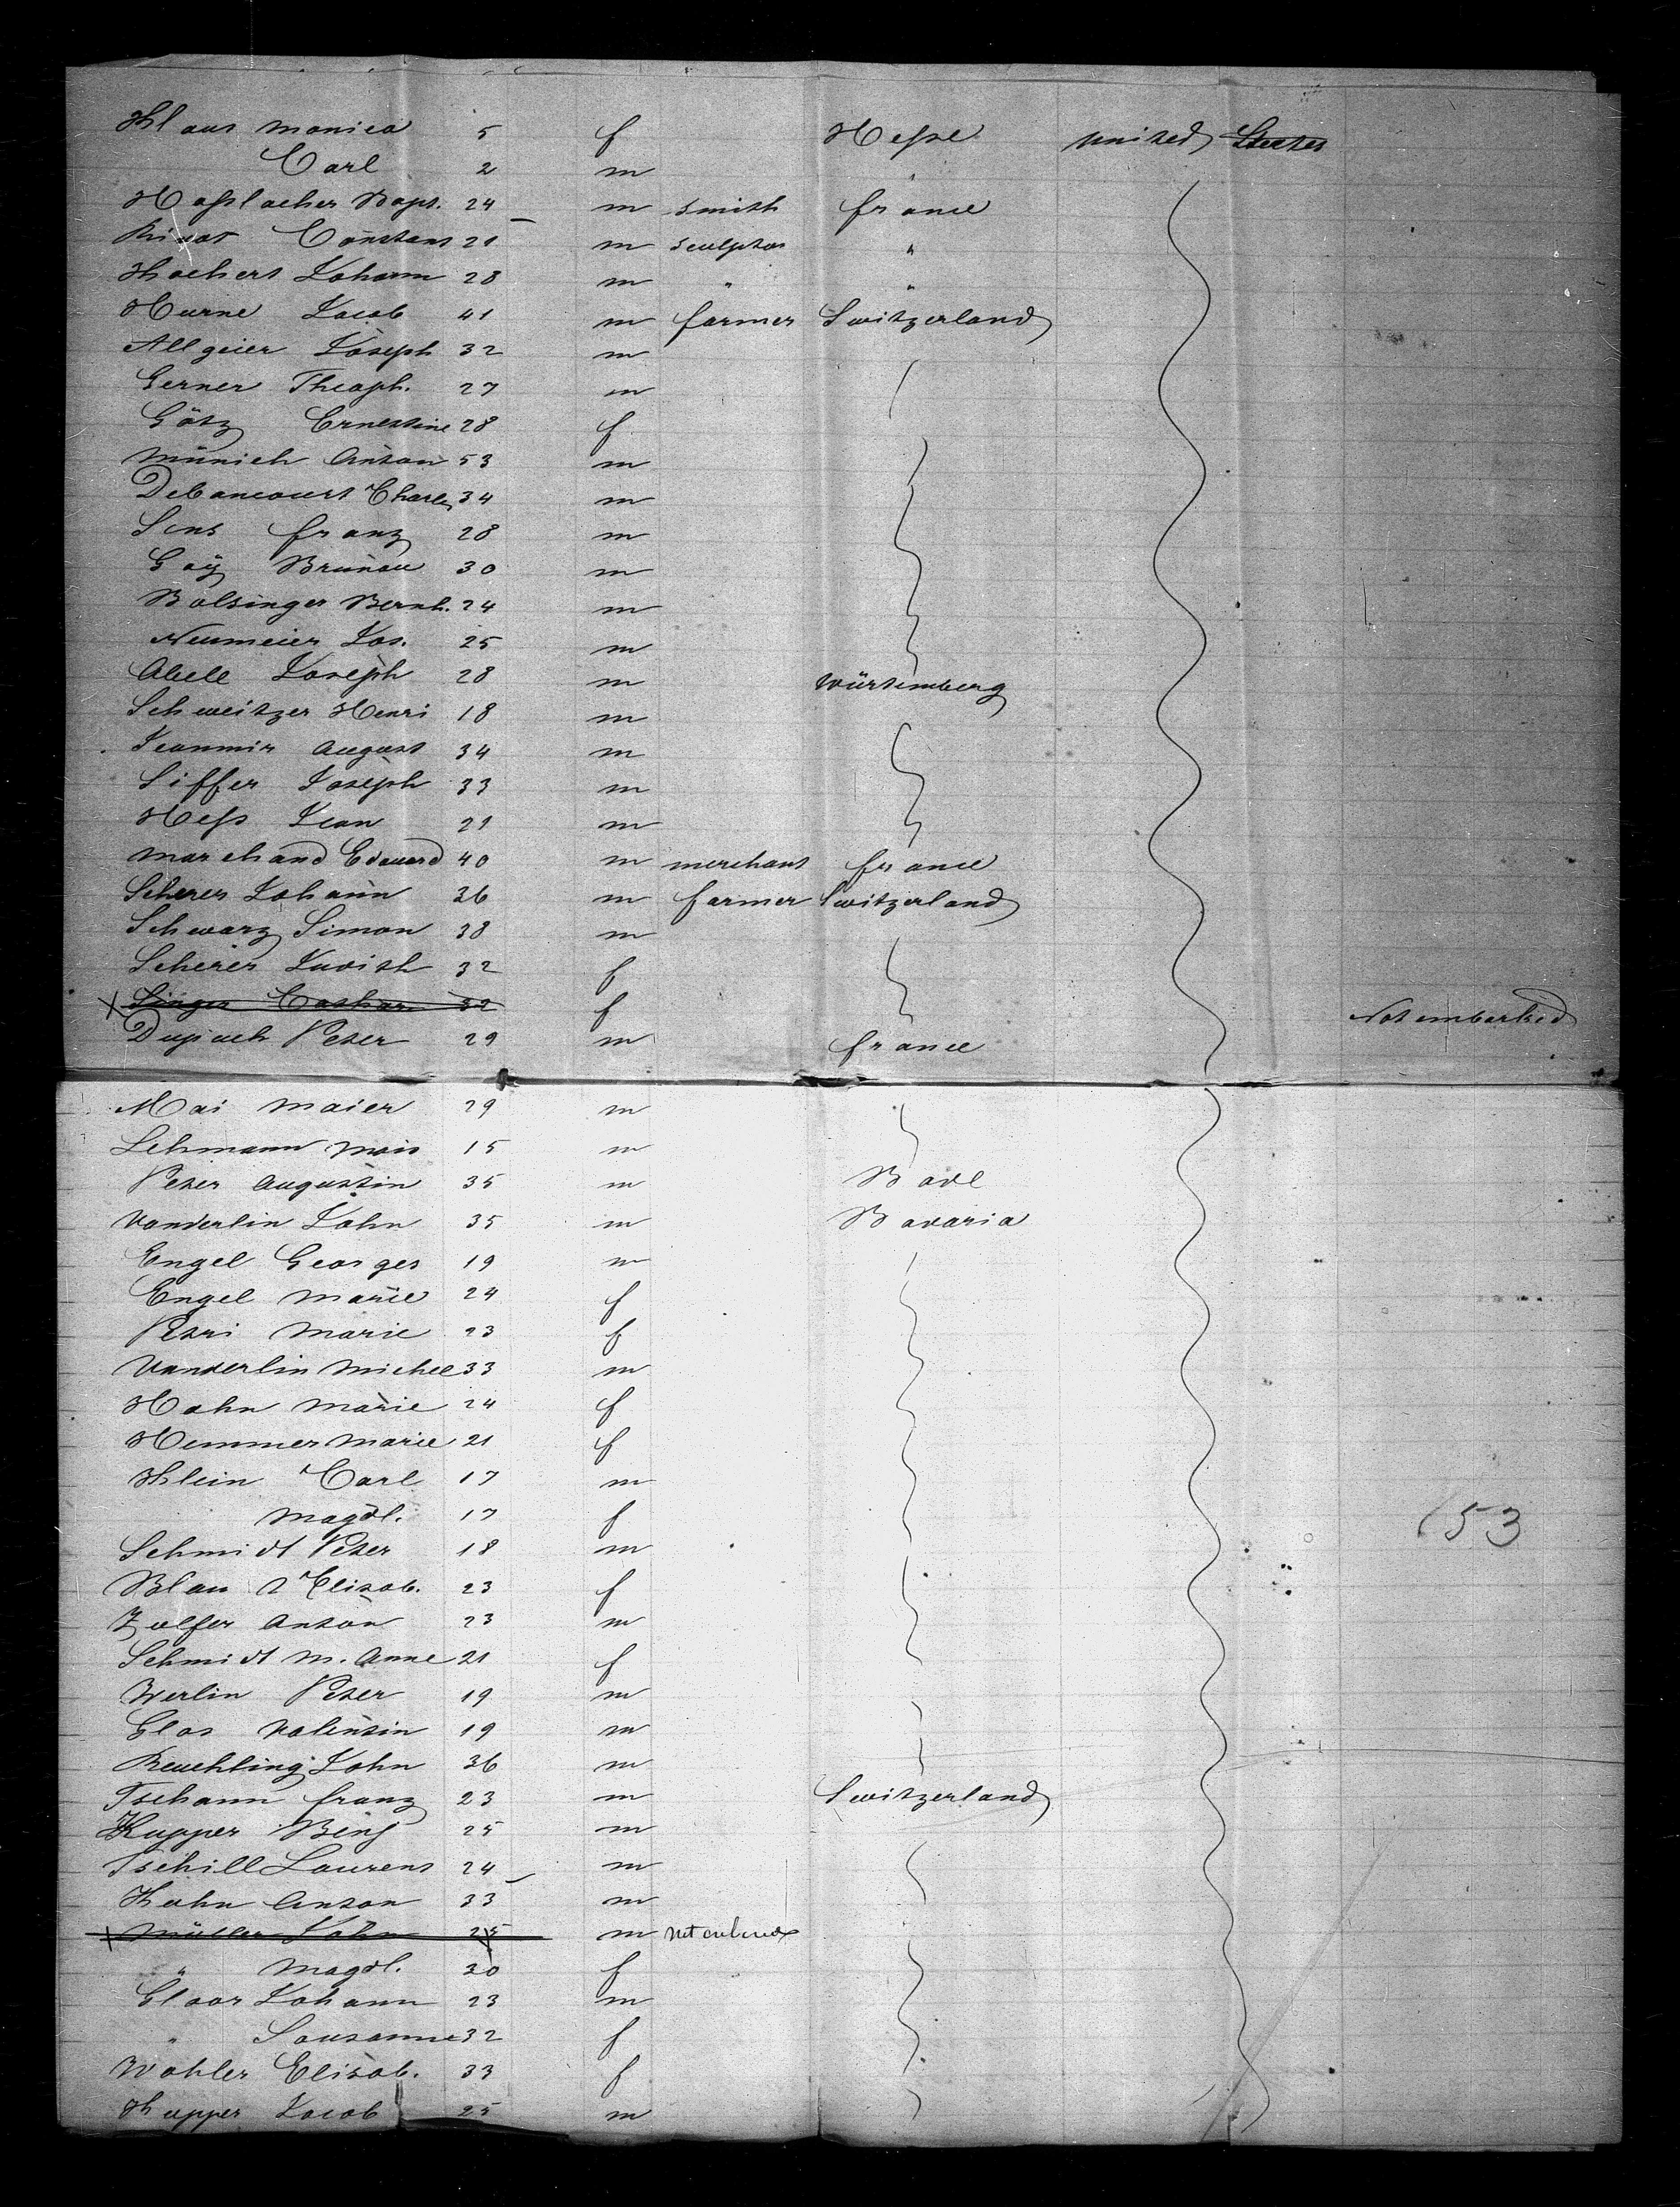 Klaus Monica 5 f Hesse United States
Carl 2 m "
Hasslacher Bapt. 24 m smith france
Rivot Constant 21 m sculptor "
Kochert Johann 28 m " "
Hurne Jacob 41 m farmer Switzerland
Allgeier Joseph 32 m
Gerner Theoph. 27 m
Götz Ernestine 28 f
Münich Anton 53 m
Debancourt Charles 34 m
Sens franz 28 m
Goÿ Brunau 30 m
Bolsinger Bernh. 24 m
Neumeier Jos. 25 m
Abell Joseph 28 m Würtemberg
Schweitzer Henri 18 m
Jeanmir August 34 m
Siffer Joseph 33 m
Hess Jean 21 m
Marchand Edouard 40 m merchant france
Scherer Johann 36 m farmer Switzerland
Schwarz Simon 38 m
Scherer Judith 32 f
X Singer Cathar. 32 f Not embarked
Dupuch Peter 29 m france
Mai Maier 29 m
Lehmann Mois 15 m
Peter Augustin 35 m Bade
Vanderlin John 35 m Bavaria
Engel Georges 19 m
Engel Marie 24 f
Petri Marie 23 f
Vanderlin Michel 33 m
Hahn Marie 24 f
Hemmer Marie 21 f
Klein Carl 17 m
Magdl. 17 f
Schmidt Peter 18 m
Blau Elisab. 23 f
Zolfer Anton 23 m
Schmidt M. Anne 21 f
Werlin Peter 19 m
Glas Valentin 19 m
Reuchling John 36 m
Tschann franz 23 m Switzerland
Kupper Benj 25 m
Tschill Laurent 24 m
Hahn Anton 33 m
X Müller John 25 m not
" Magdl. 30 f
Gloor Johann 23 m
" Sousanne 32 f
Wohler Elisab. 33 f
Kupper Jacob 25 m
153